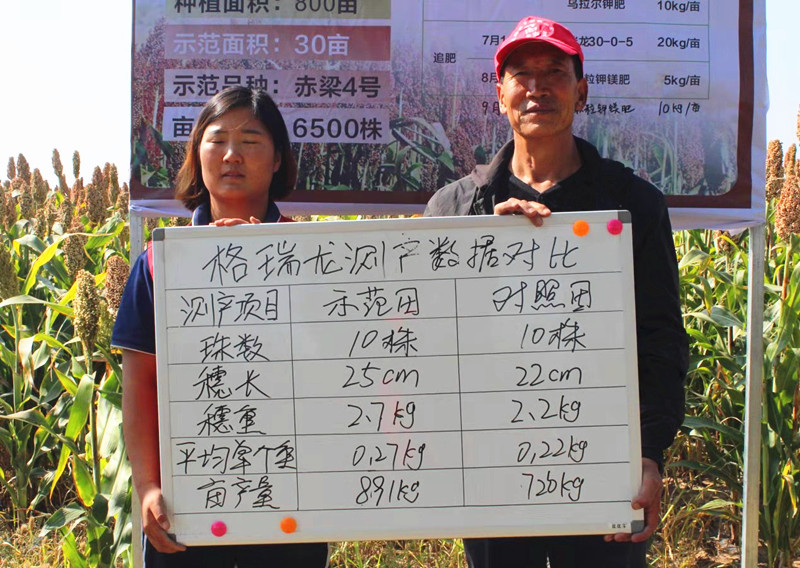 种植面积：800亩
示范面积：30亩
示范品种：赤梁4号
亩 6500株
乌拉尔钾肥 10kg/亩
追肥
7月1 龙30-0-5 20kg/亩
8月 粒钾镁肥 5kg/亩
9月 10kg/亩
格瑞龙测产数据对比
测产项目 示范田 对照田
珠数 10株 10株
穗长 25cm 22cm
穗重 2.7kg 2.2kg
平均单个重 0.27kg 0.22kg
亩产量 891kg 726kg